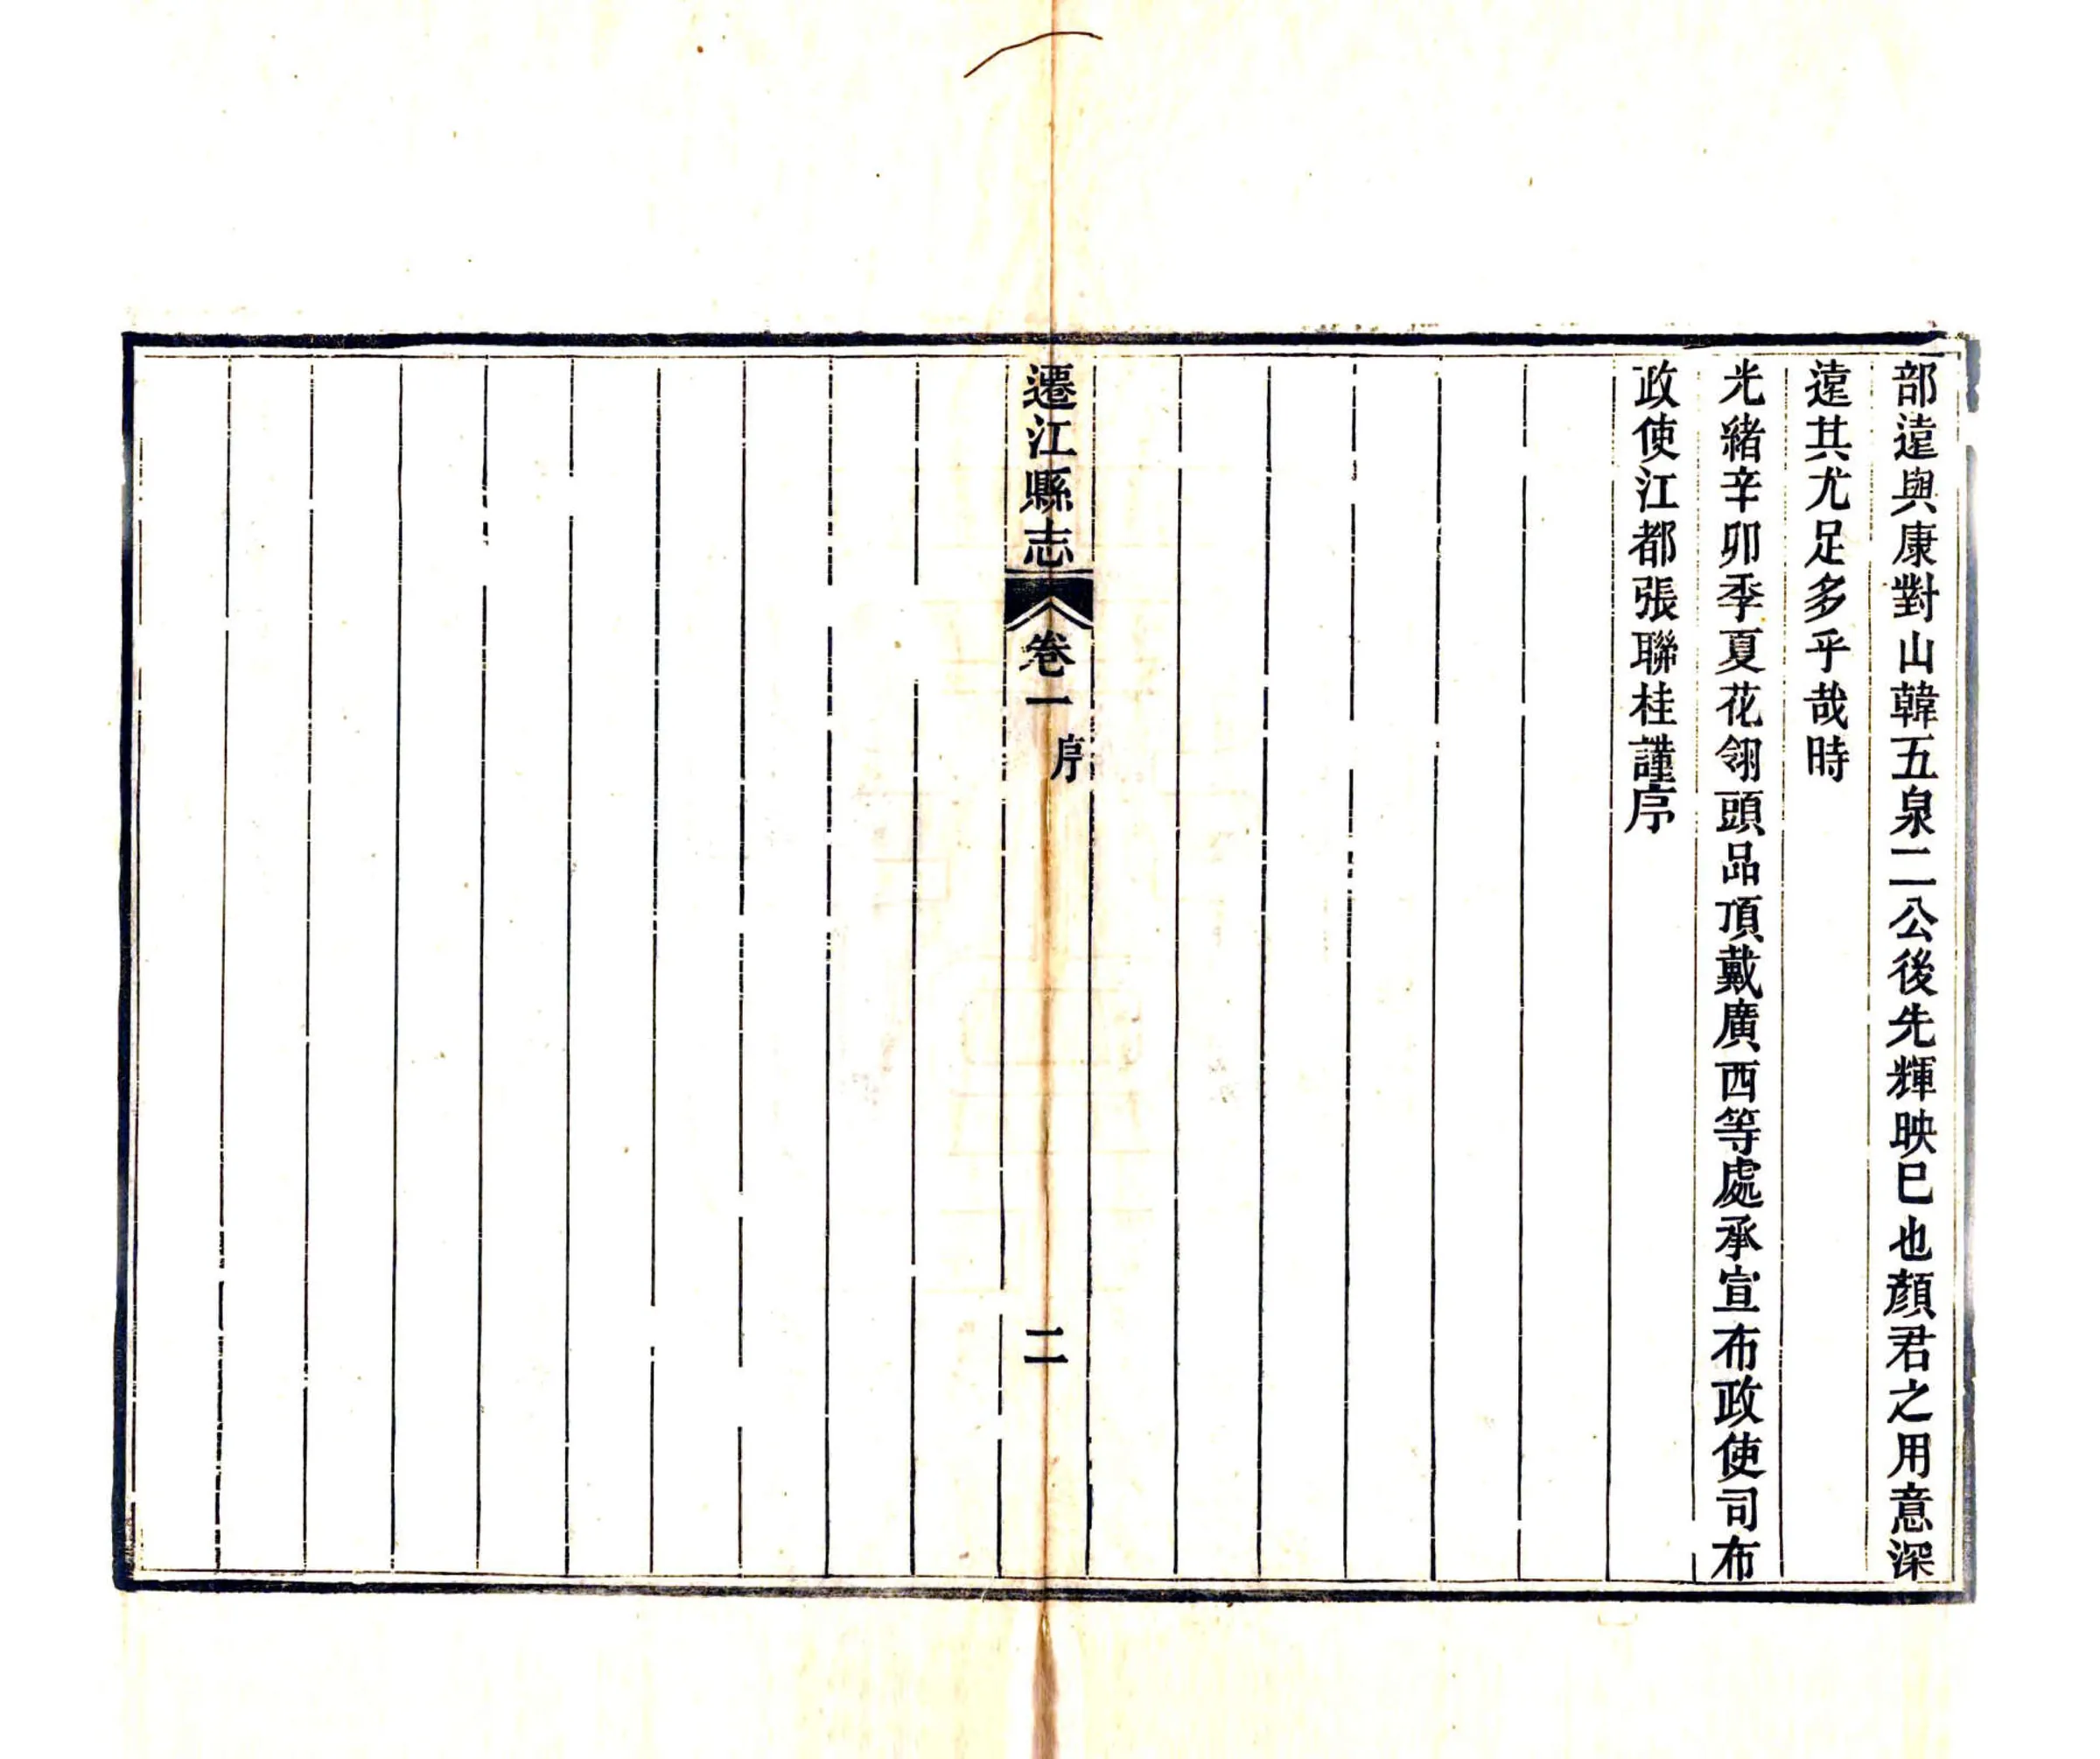 部遠與康對山韓五泉二公後先輝映巳也顏君之用意深
遠其尤足多乎哉時
光緒辛卯季夏花翎頭品頂戴廣西等處承宣布政使司布
政使江都張聯桂謹序
遷江縣志 卷一 序 二